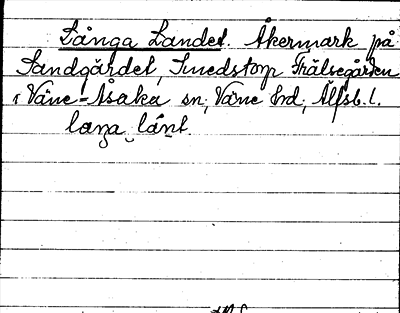 Långa Landet. Åkermark på
Sandgärdet, Smedstorp Trälsegården
i Väne-Åsaka sn, Väne hd, Älfsb. l.
laŋa lánt